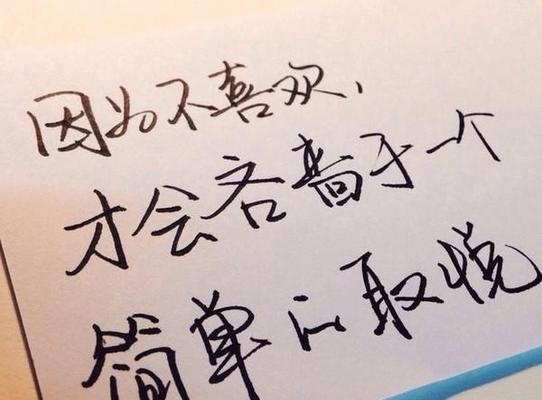 因为不喜欢，
才会吝啬于一个
简单的取悦